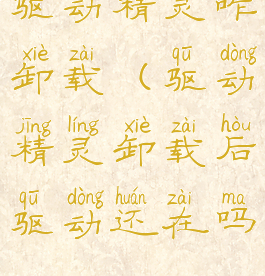 驱动精灵咋
xiè zài qū dòng
卸载（驱动
jīng líng xiè zài hòu
精灵卸载后
qū dòng huán zài ma
驱动还在吗